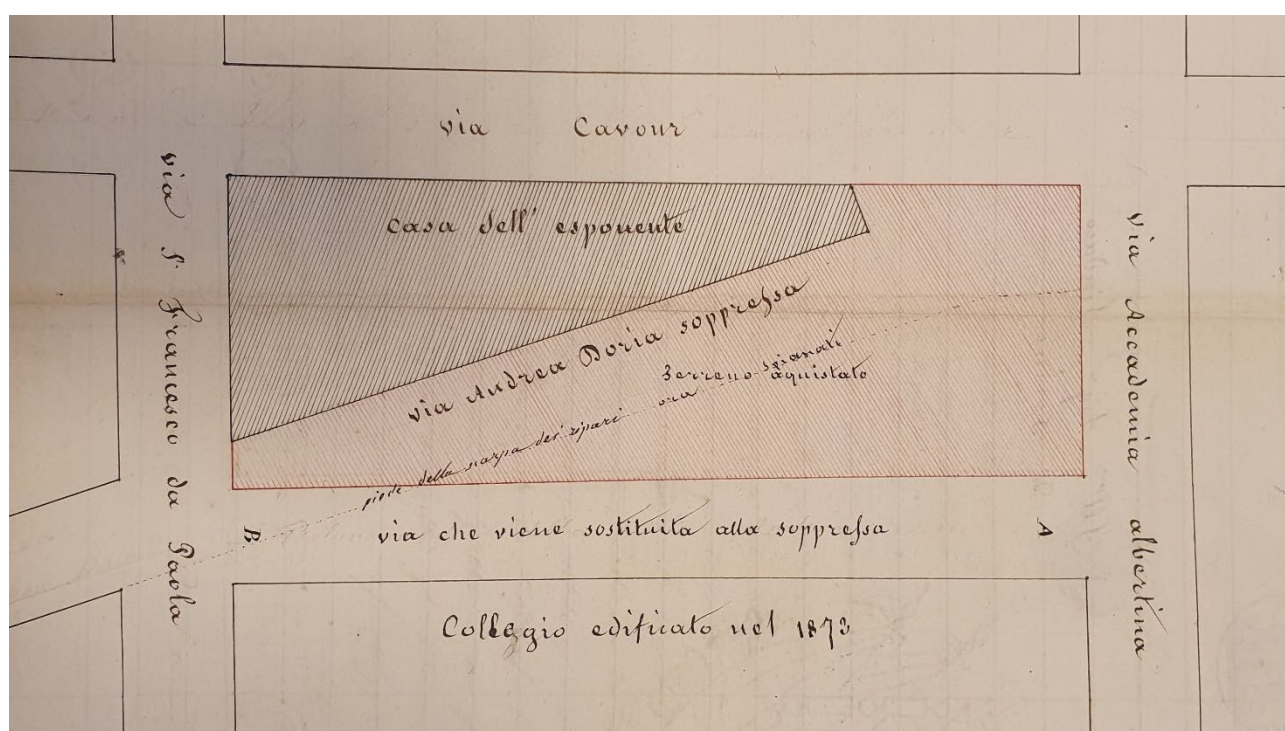 via Cavour
via S. Francesco da Paola
casa dell' esponente
via Andrea Doria soppressa
Terreno aquistato
piede della scarpa dei ripari ora spianati
via Accademia albertina
B
via che viene sostituita alla soppressa
A
Collegio edificato nel 1873